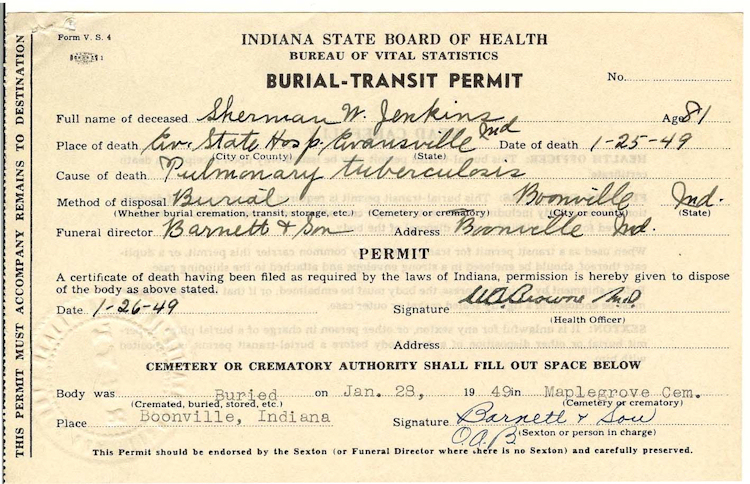 Form V. S. 4
INDIANA STATE BOARD OF HEALTH
BUREAU OF VITAL STATISTICS
BURIAL-TRANSIT PERMIT
No.
Full name of deceased Sherman W. Jenkins Age 81
Place of death Ev. State Hosp, Evansville Ind Date of death 1-25-49
(City or County) (State)
Cause of death Pulmonary tuberculosis
Method of disposal Burial Boonville Ind.
(Whether burial cremation, transit, storage, etc.) (Cemetery or crematory) (City or county) (State)
Funeral director Barnett & Son Address Boonville Ind.
PERMIT
A certificate of death having been filed as required by the laws of Indiana, permission is hereby given to dispose
of the body as above stated.
Date 1-26-49 Signature Browne M.D.
(Health Officer)
Address
CEMETERY OR CREMATORY AUTHORITY SHALL FILL OUT SPACE BELOW
Body was Buried on Jan. 28, 19 49 in Maplegrove Cem.
(Cremated, buried, stored, etc.) (Cemetery or crematory)
Place Boonville, Indiana Signature Barnett & Son
O.A.B. (Sexton or person in charge)
This Permit should be endorsed by the Sexton (or Funeral Director where there is no Sexton) and carefully preserved.
THIS PERMIT MUST ACCOMPANY REMAINS TO DESTINATION